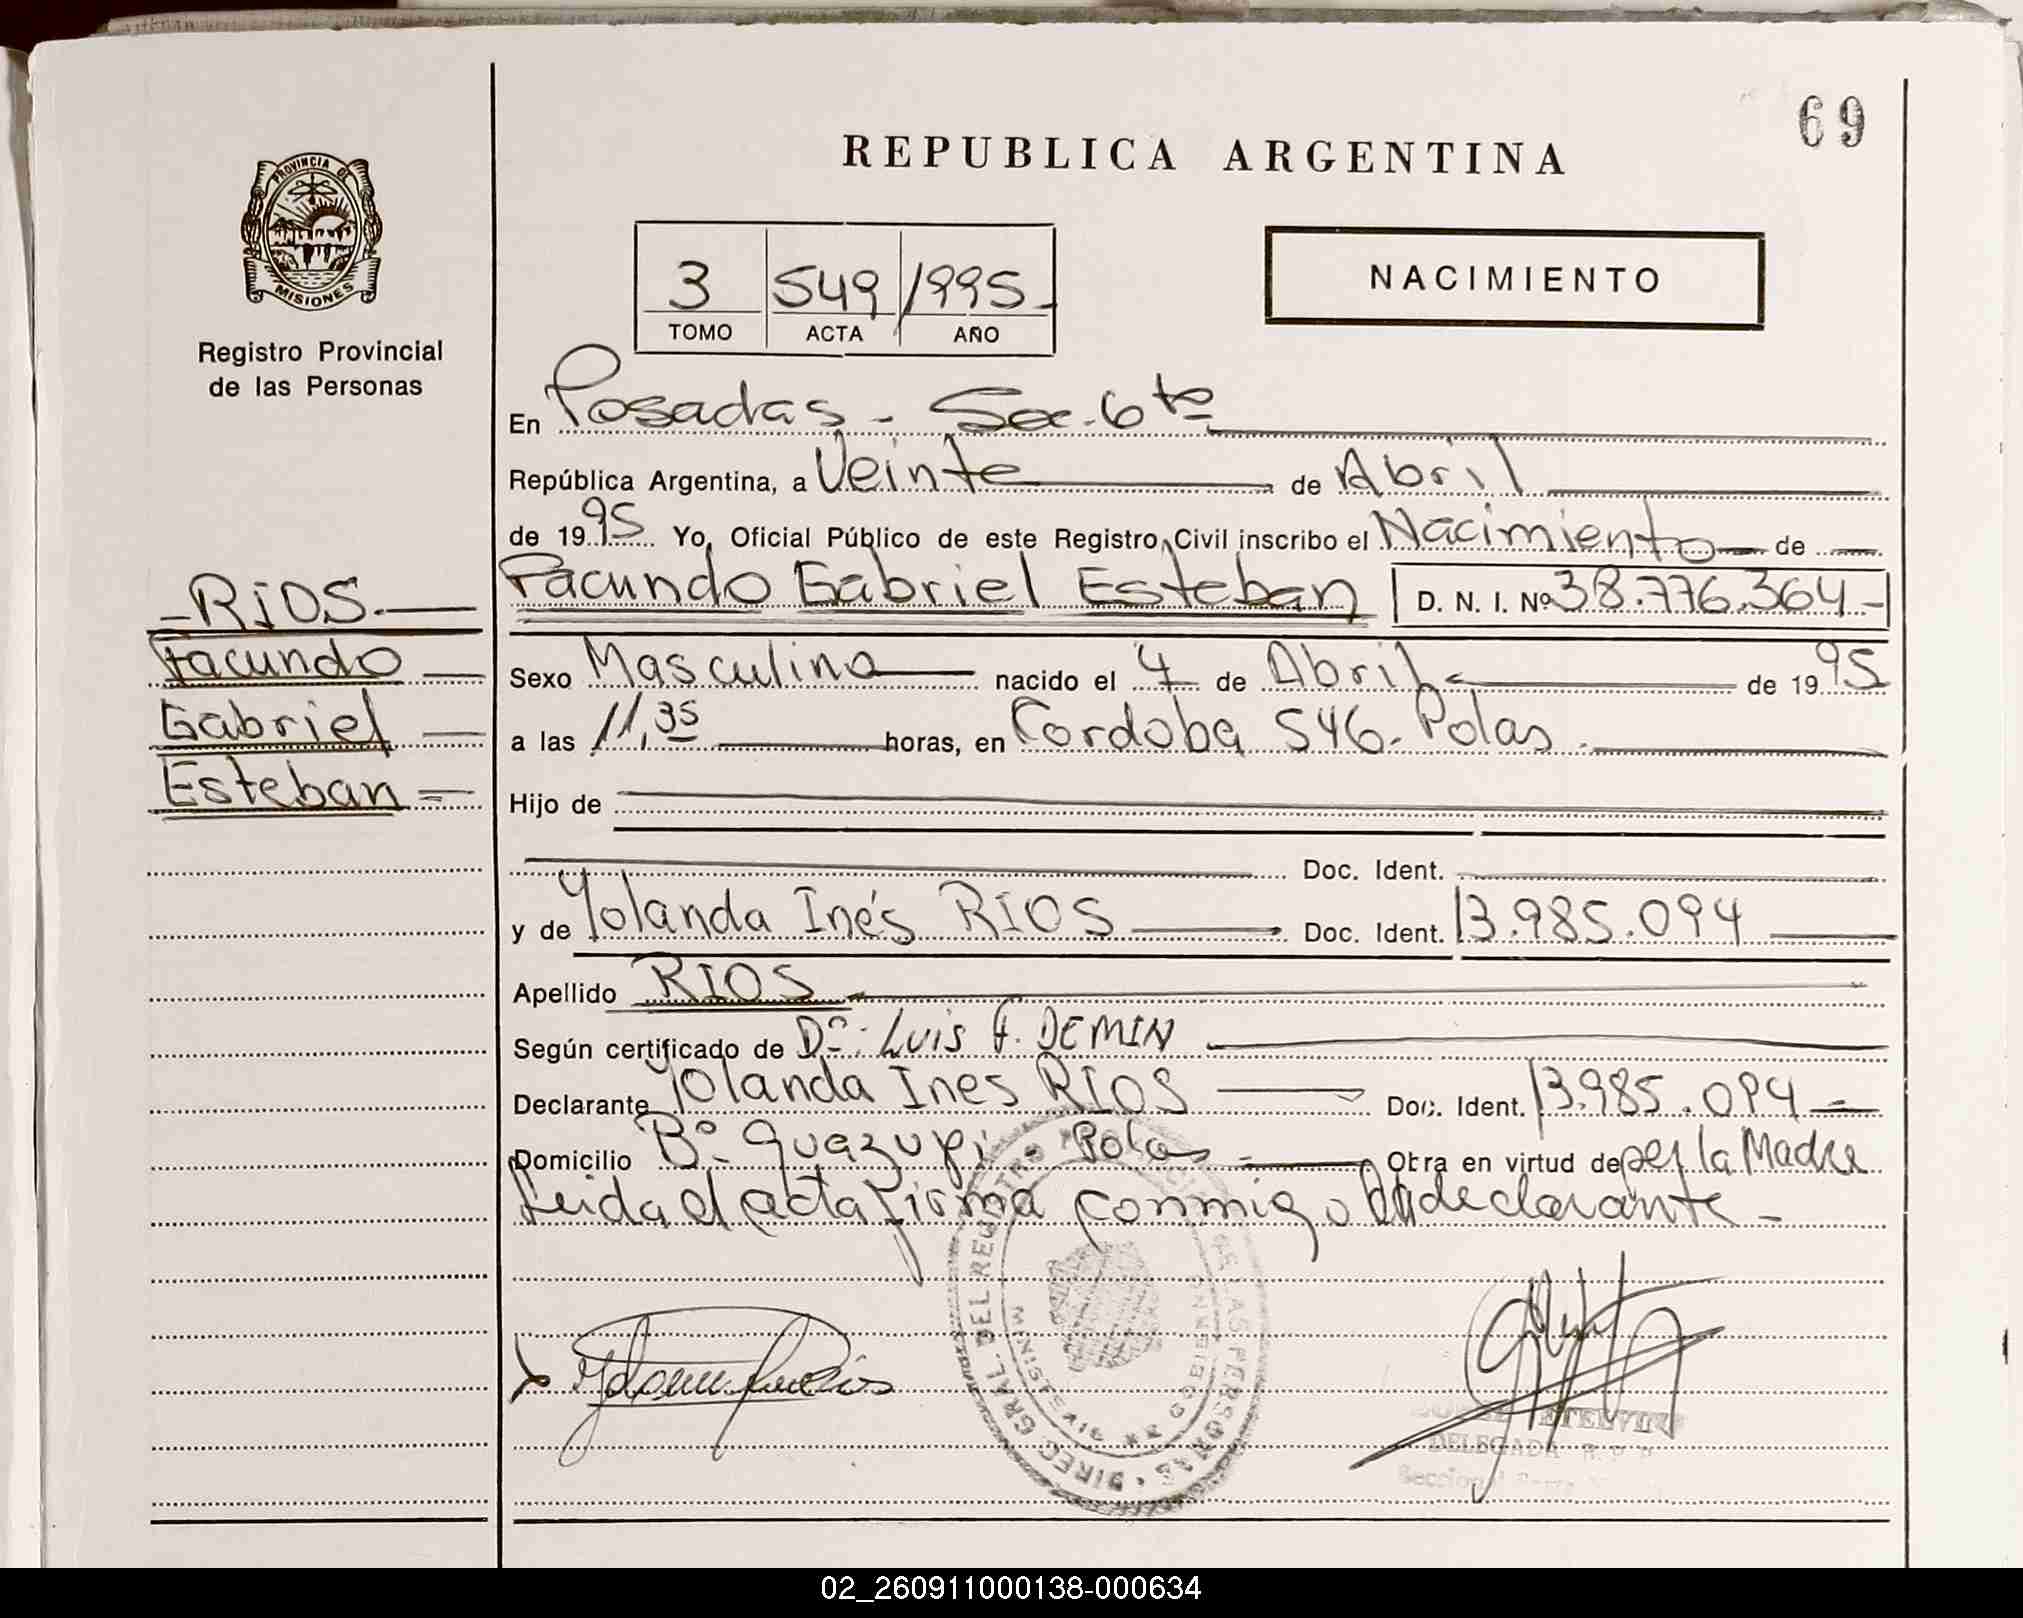 69
REPUBLICA ARGENTINA
PROVINCIA DE
MISIONES
Registro Provincial
de las Personas
3 549 1995
TOMO ACTA AÑO
NACIMIENTO
En Posadas - Sec. 6ta
República Argentina, a Veinte de Abril
de 1995 Yo, Oficial Público de este Registro Civil inscribo el Nacimiento de
Facundo Gabriel Esteban D. N. I. Nº 38.776.364
RIOS
Facundo
Gabriel
Esteban
Sexo Masculino nacido el 4 de Abril de 1995
a las 11,35 horas, en Cordoba 546. Pdas
Hijo de
Doc. Ident.
y de Yolanda Inés RIOS Doc. Ident. 13.985.094
Apellido RIOS
Según certificado de Dr: Luis DEMIN
Declarante Yolanda Ines RIOS Doc. Ident. 13.985.094
Domicilio Bº Guazupi - Pdas Obra en virtud de ser la Madre
Leida el acta firma conmigo la declarante
DIREC. GRAL. DEL REGISTRO PROVINCIAL DE LAS PERSONAS
MINISTERIO DE GOBIERNO
ETELVINA
DELEGADA R.P.P.
Seccional
02_260911000138-000634